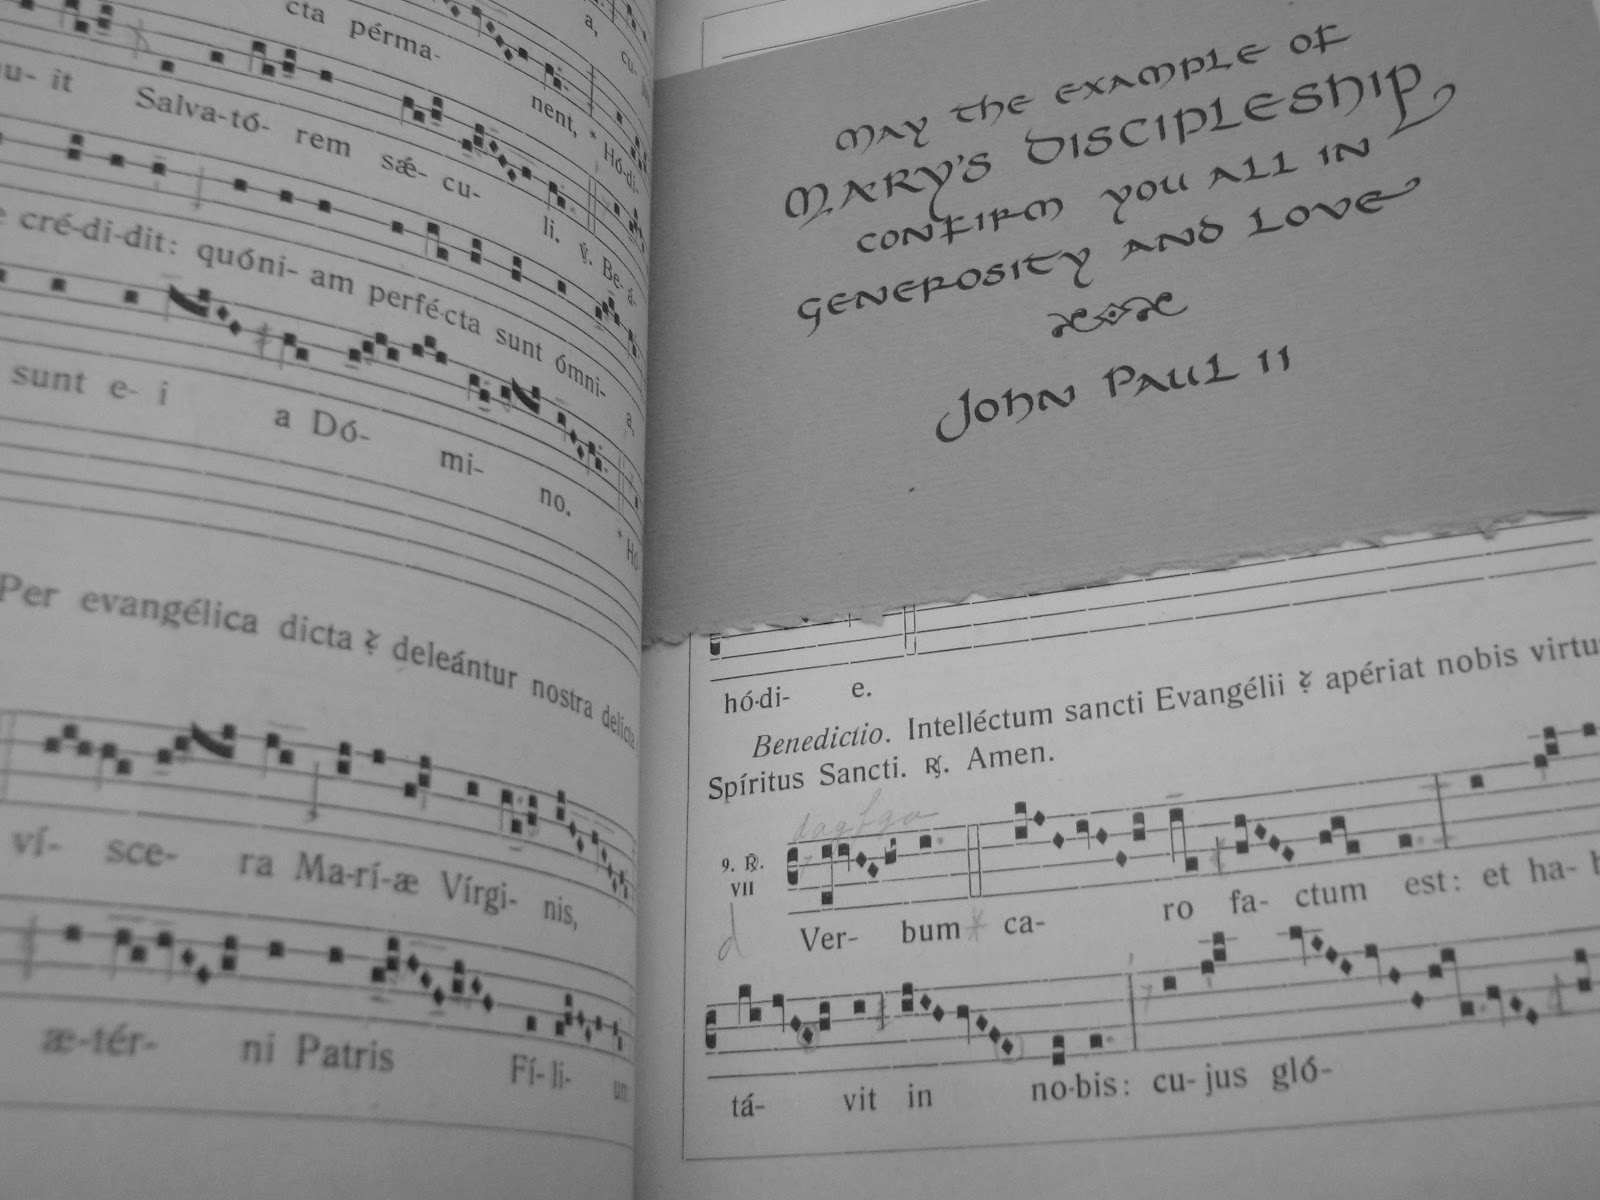 cta pérma- nent, * Hó-di-
it Salva-tó- rem sǽ- cu- li. ℣. Be- á-
cré-di-dit: quóni- am perfé-cta sunt ómni- a,
sunt e- i a Dó- mi- no. * Hó
Per evangélica dicta deleántur nostra delícta
ví- sce- ra Ma-rí-æ Vírgi- nis,
æ-tér- ni Patris Fí- li- um
a, cu-
MAY THE EXAMPLE OF
MARY'S DISCIPLESHIP
CONFIRM YOU ALL IN
GENEROSITY AND LOVE
JOHN PAUL II
hó-di- e.
Benedictio. Intelléctum sancti Evangélii apériat nobis virtu
Spíritus Sancti. ℟. Amen.
dagfga
9. ℟.
VII
d
Ver- bum * ca- ro fa- ctum est: et ha-
tá- vit in no-bis: cu- jus gló-